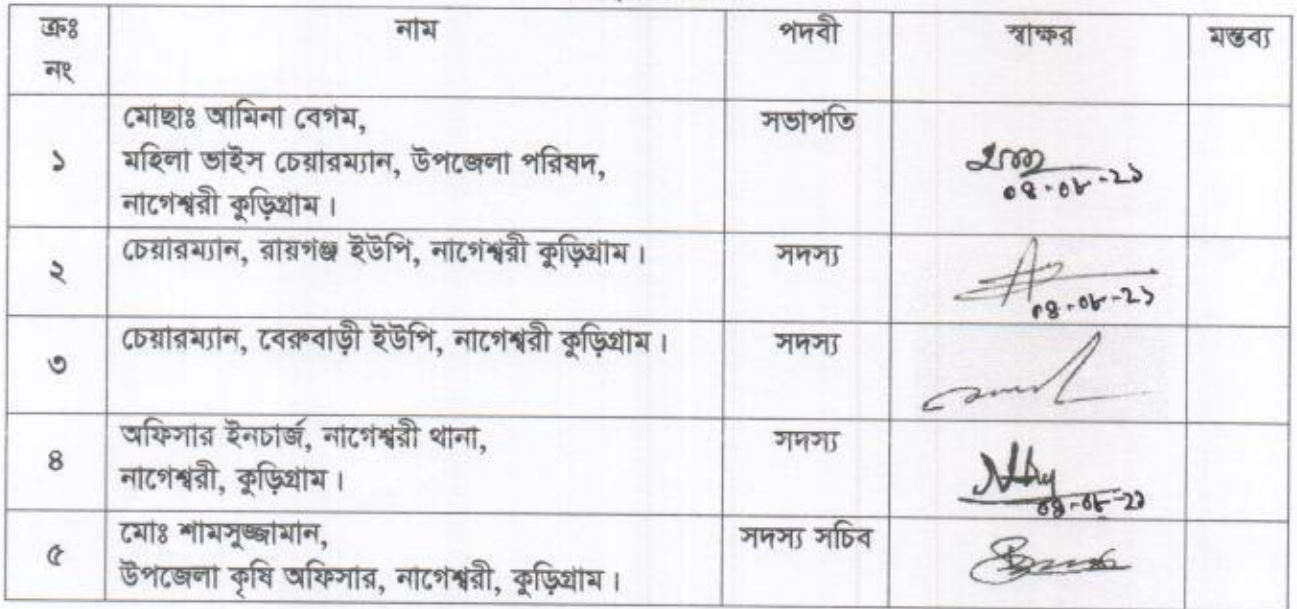 ক্রঃ নং নাম পদবী স্বাক্ষর মন্তব্য
১ মোছাঃ আমিনা বেগম, সভাপতি
মহিলা ভাইস চেয়ারম্যান, উপজেলা পরিষদ,
নাগেশ্বরী কুড়িগ্রাম।
০৪-০৮-২১
২ চেয়ারম্যান, রায়গঞ্জ ইউপি, নাগেশ্বরী কুড়িগ্রাম। সদস্য
০৪-০৮-২১
৩ চেয়ারম্যান, বেরুবাড়ী ইউপি, নাগেশ্বরী কুড়িগ্রাম। সদস্য
৪ অফিসার ইনচার্জ, নাগেশ্বরী থানা, সদস্য
নাগেশ্বরী, কুড়িগ্রাম।
০৪-০৮-২১
৫ মোঃ শামসুজ্জামান, সদস্য সচিব
উপজেলা কৃষি অফিসার, নাগেশ্বরী, কুড়িগ্রাম।